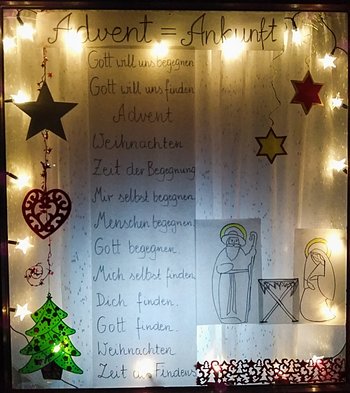 Advent = Ankunft
Gott will uns begegnen
Gott will uns finden
Advent
Weihnachten
Zeit der Begegnung
Mir selbst begegnen
Menschen begegnen
Gott begegnen.
Mich selbst finden
Dich finden.
Gott finden.
Weihnachten
Zeit des Findens